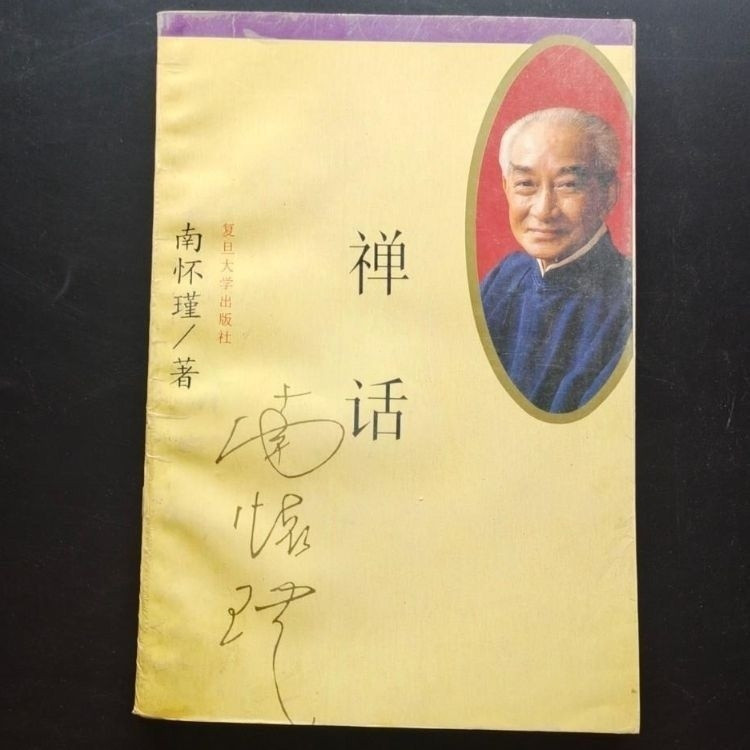 禅话
南怀瑾/著
复旦大学出版社
南怀瑾